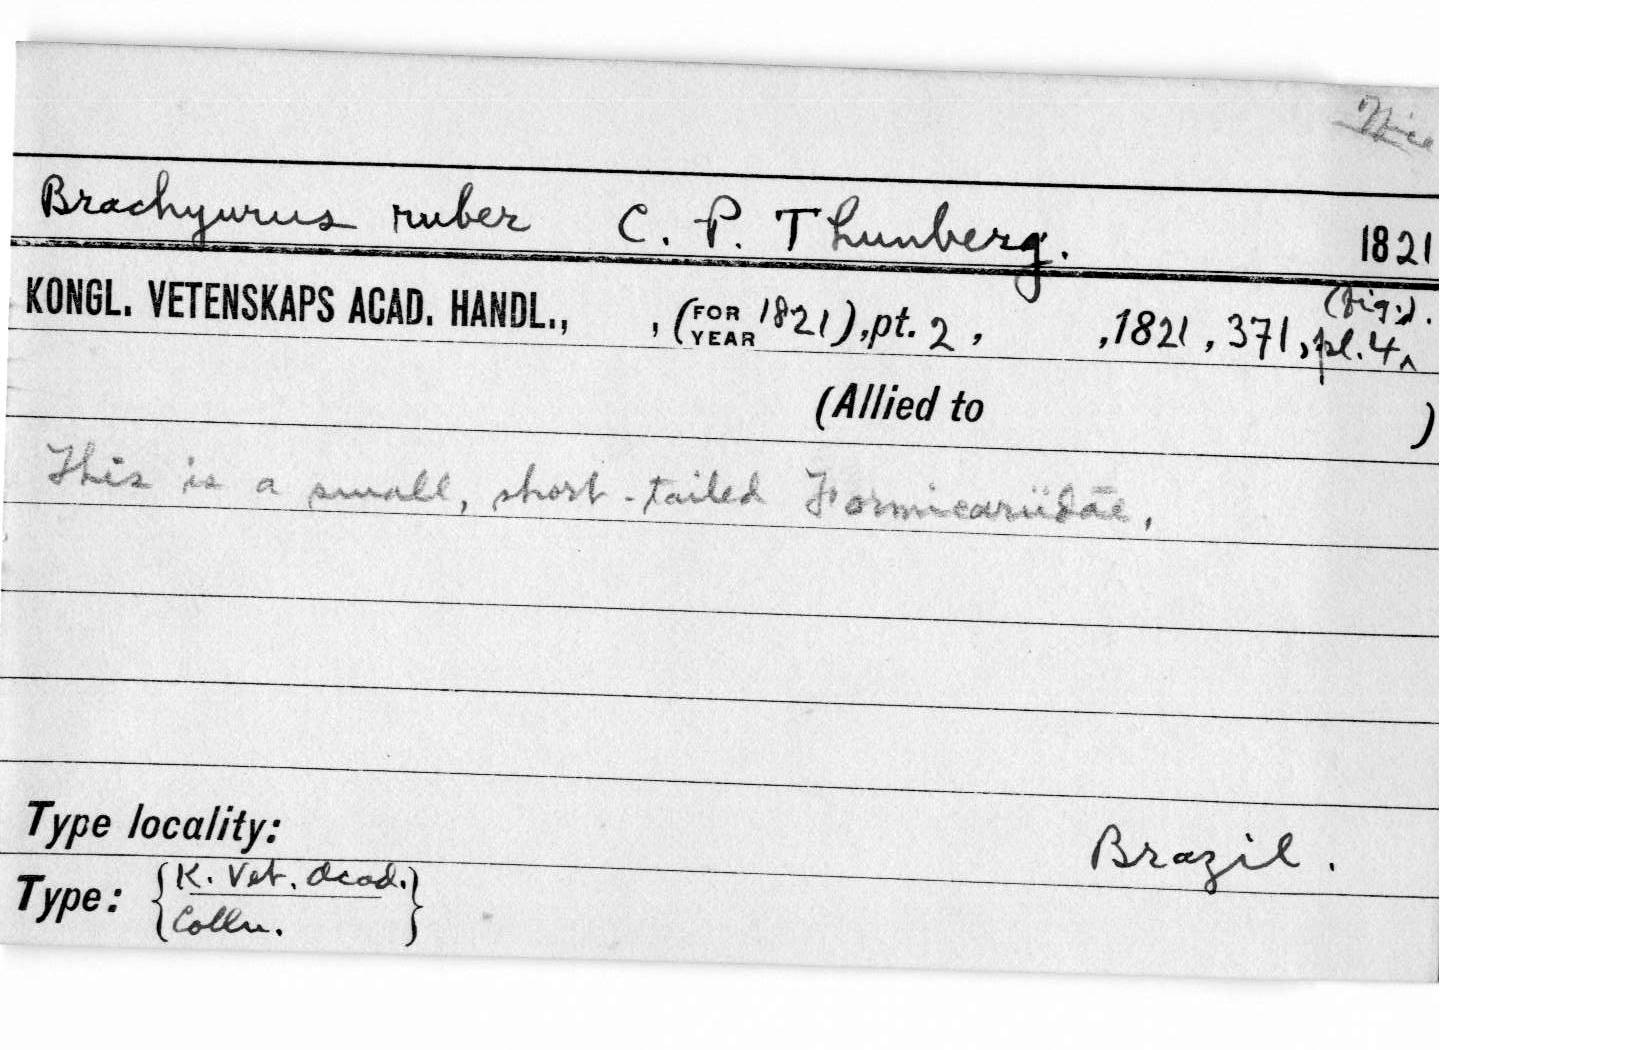 Brachyurus ruber C. P. Thunberg. 1821
KONGL. VETENSKAPS ACAD. HANDL., , (FOR YEAR 1821), pt. 2, ,1821, 371, pl. 4 (fig.).
(Allied to )
This is a small, short-tailed Formicariidae.
Type locality: Brazil.
Type: {K. Vet. Acad. Colln.}